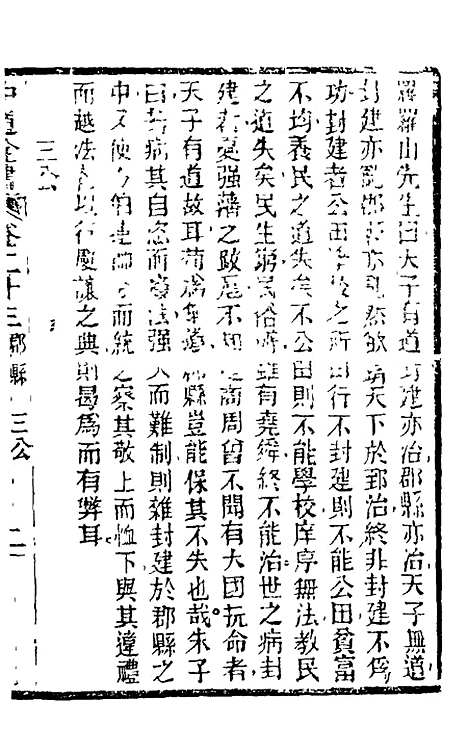 羅羅山先生曰天子有道封建亦治郡縣亦治天子無道
封建亦亂郡縣亦亂然欲躋天下於郅治終非封建不爲
功封建者公田學校之所由行不封建則不能公田貧富
不均養民之道失矣不公田則不能學校庠序無法教民
之道失矣民生窮民俗壞雖有堯舜終不能治世之病封
建者憂强藩之跋扈不知 商周曾不聞有大國抗命者
天子有道故耳苟無道 郡縣豈能保其不失也哉朱子
曰若病其自恣而廢法强 大而難制則雜封建於郡縣之
中又使方伯連帥分而統 之察其敬上而恤下與其違禮
而越法者以行慶讓之典則曷爲而有弊耳
三公
中道全書 卷二十三 郡縣 三公 二